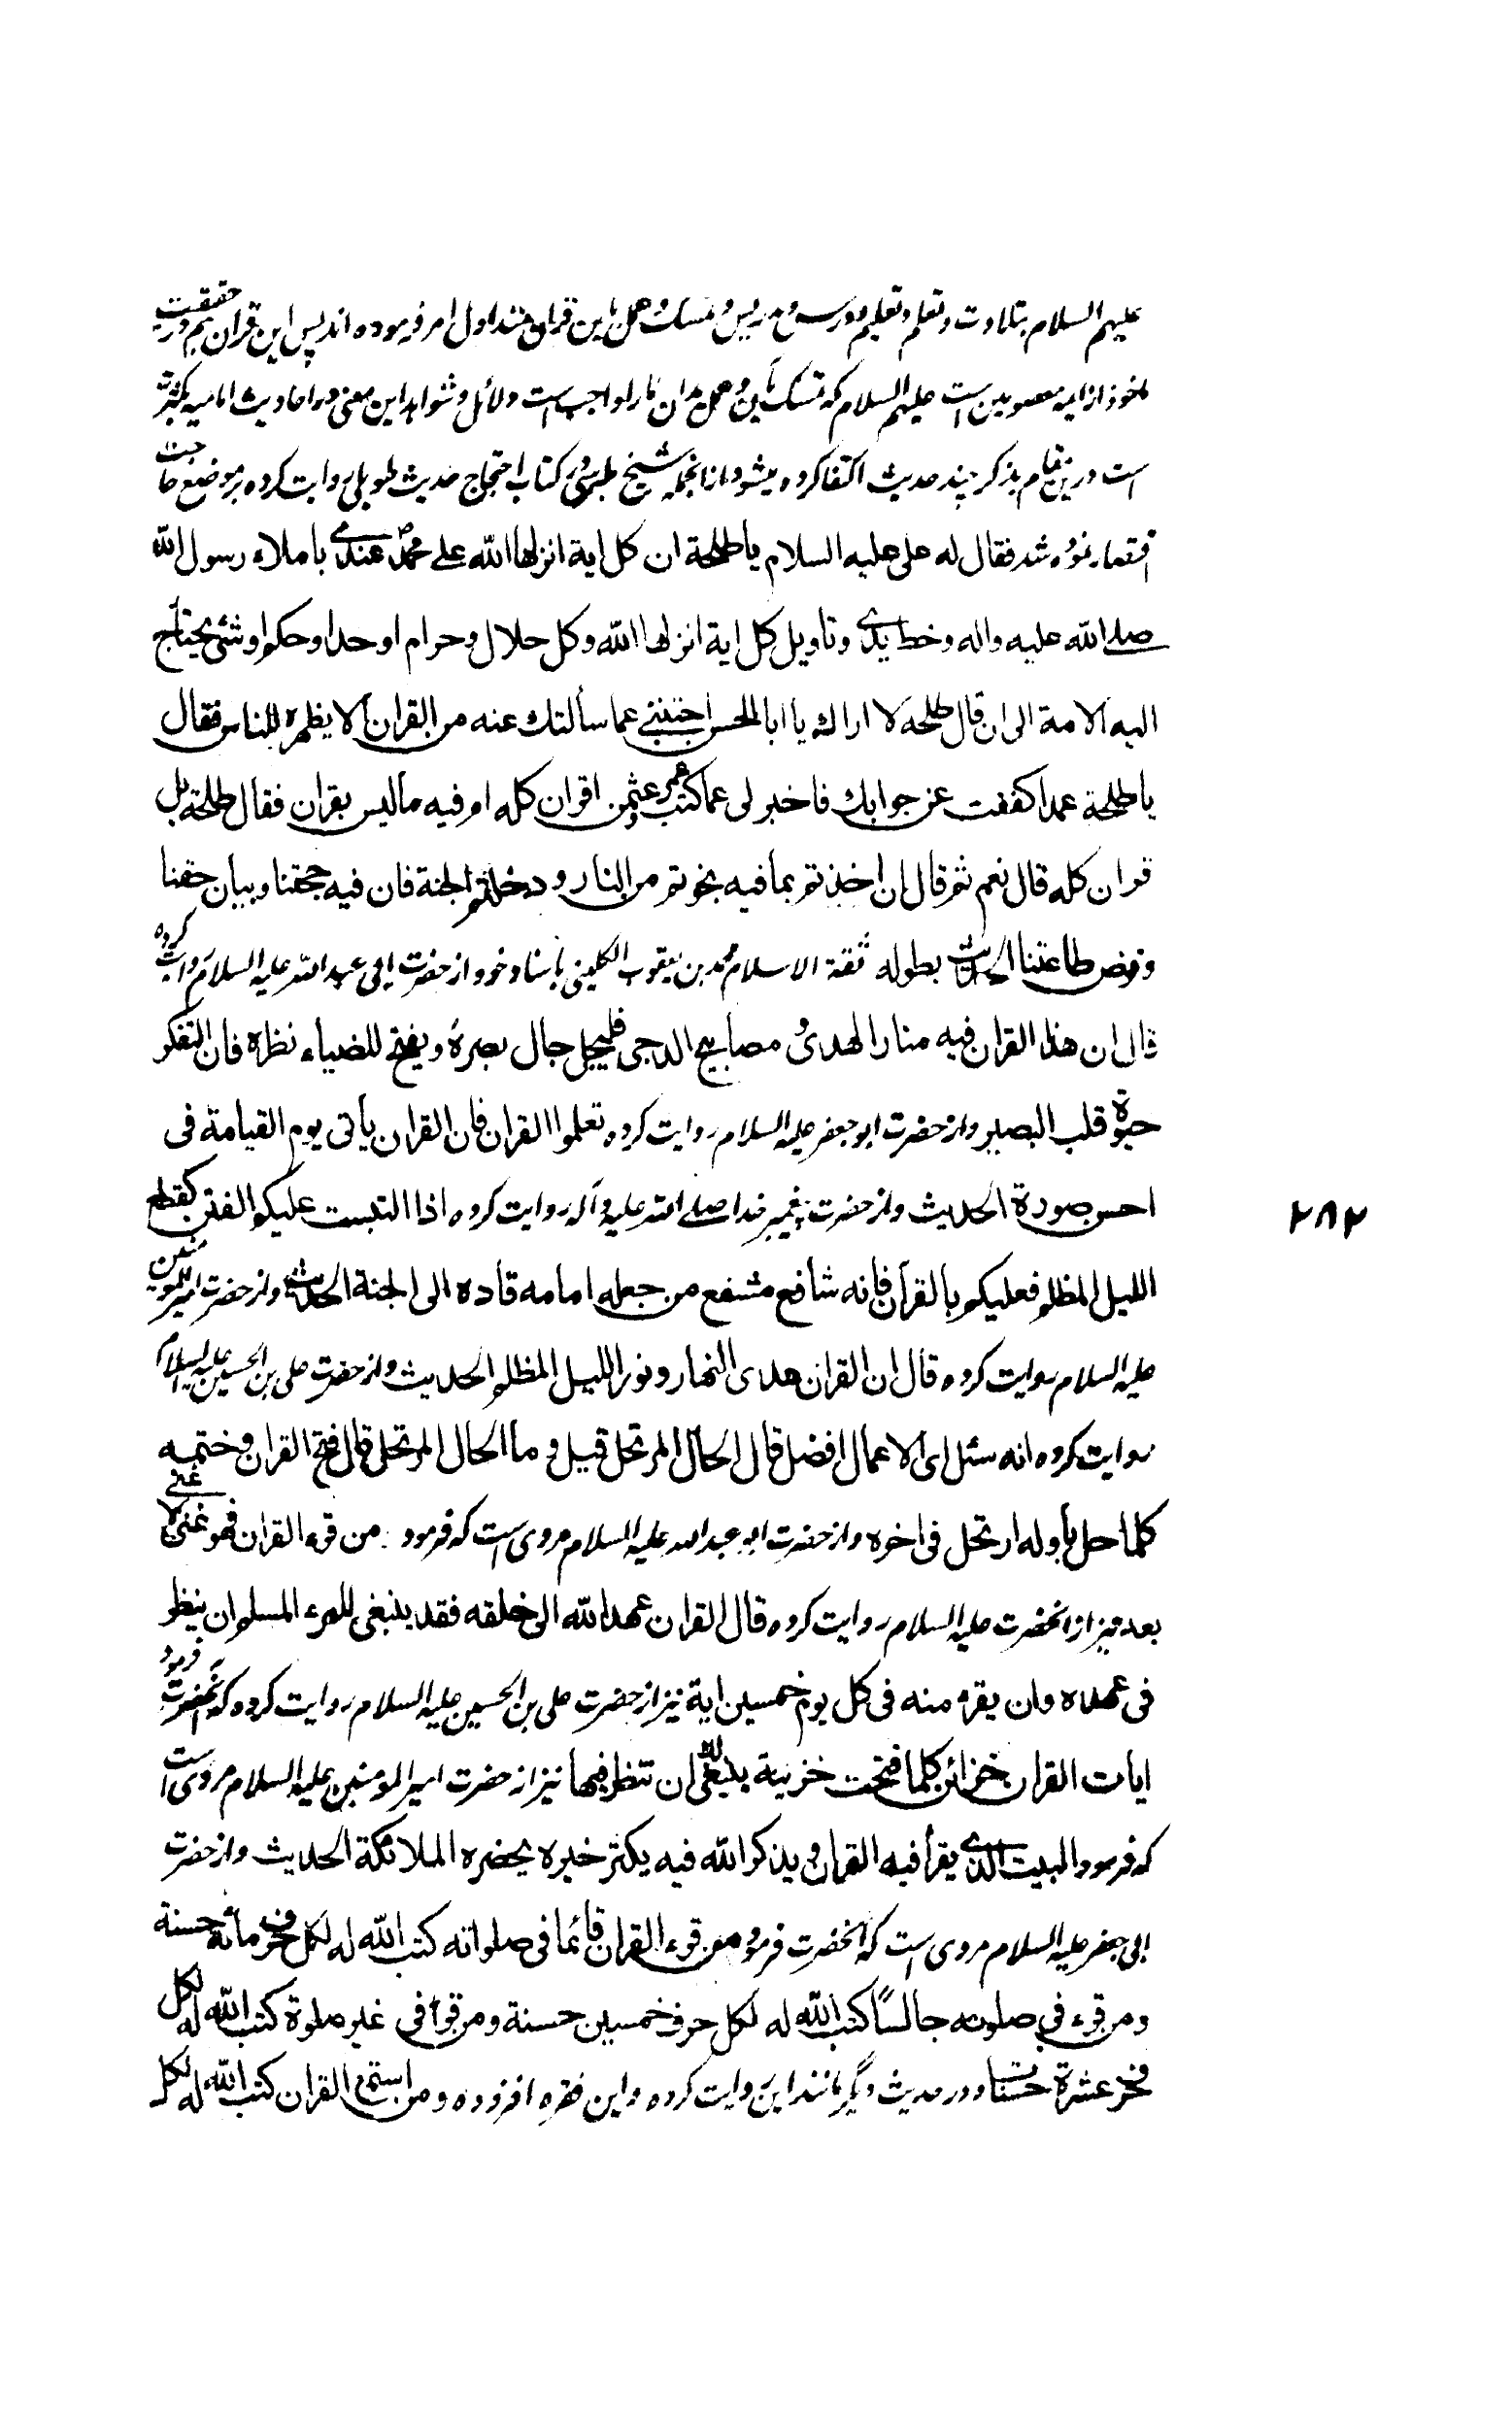 علیهم السلام بتلاوت و تعلم و تعلیم و درس و تدریس و تمسک و عمل باین قران متداول امر فرموده اند پس این قران هم در حقیقت
ماخوذ از ایمه معصومین است علیهم السلام که تمسک باین و عمل بدان مارا واجب است و لائل و شواهد این معنی در احادیث امامیه بکثرت
است درین مقام بذکر چند حدیث اکتفا کرده میشود از انجمله شیخ طبرسی در کتاب احتجاج حدیث طویلی روایت کرده بر موضع حاجت
اقتصار نموده شد فقال له علی علیه السلام یا طلحة ان کل ایة انزلها الله علی محمد ص عندی باملاء رسول الله
صلی الله علیه واله وخط یدی وتاویل کل ایة انزلها الله وکل حلال وحرام او حد او حکم او شئ یحتاج
الیه الامة الی ان قال طلحه لا اراك یا ابا الحسن اجبتنی عما سألتك عنه من القران الا یظهره للناس فقال
یا طلحة عمدا کففت عن جوابك فاخبرلی عما کتب عمر وعثمن اقران کله ام فیه ما لیس بقران فقال طلحة بل
قران کله قال نعم ثم قال ان اخذتم بما فیه نجوتم من النار و دخلتم الجنة فان فیه حجتنا وبیان حقنا
وفرض طاعتنا الحدیث بطوله ثقة الاسلام محمد بن یعقوب الکلینی باسناد خود از حضرت ابی عبد الله علیه السلام روایت کرده
قال ان هذا القران فیه منار الهدی و مصابیح الدجی فلیجل جال بصره ویفتح للضیاء نظره فان التفکر
حیوة قلب البصیر و از حضرت ابو جعفر علیه السلام روایت کرده تعلموا القران فان القران یأتی یوم القیامة فی
احسن صورة الحدیث و از حضرت پیغمبر خدا صلی الله علیه وآله روایت کرده اذا التبست علیکم الفتن کقطع
اللیل المظلم فعلیکم بالقرآن فانه شافع مشفع من جعله امامه قاده الی الجنة الحدیث و از حضرت امیر المومنین
علیه السلام روایت کرده قال ان القران هدی النهار و نور اللیل المظلم الحدیث و از حضرت علی بن الحسین علیه السلام
روایت کرده انه سئل ای الاعمال افضل قال الحال المرتحل قیل و ما الحال المرتحل قال فتح القران و ختمه
کلما حل بأوله ارتحل فی اخره و از حضرت ابو عبد الله علیه السلام مروی است که فرمود من قرء القران فهو غنی لا غنی
بعده نیز از انحضرت علیه السلام روایت کرده قال القران عهد الله الی خلقه فقد ینبغی للمرء المسلم ان ینظر
فی عهده وان یقرء منه فی کل یوم خمسین ایة نیز از حضرت علی بن الحسین علیه السلام روایت کرده که آنحضرت فرمود
ایات القران خزائن کلما فتحت خزینة ینبغی لك ان تنظر فیها نیز از حضرت امیر المومنین علیه السلام مروی است
که فرمود البیت الذی یقرأ فیه القران و یذکر الله فیه یکثر خیره یحضره الملائکة الحدیث و از حضرت
ابی جعفر علیه السلام مروی است که انحضرت فرمود من قرء القران قائما فی صلواته کتب الله له لکل حرف مائة حسنة
ومن قرء فی صلوته جالسًا کتب الله له لکل حرف خمسین حسنة ومن قرأ فی غیر صلوة کتب الله له لکل
حرف عشرة حسنات و در حدیث دیگر مانند این روایت کرده و این فقره افزوده ومن استمع القران کتب الله له لکل
۲۸۲